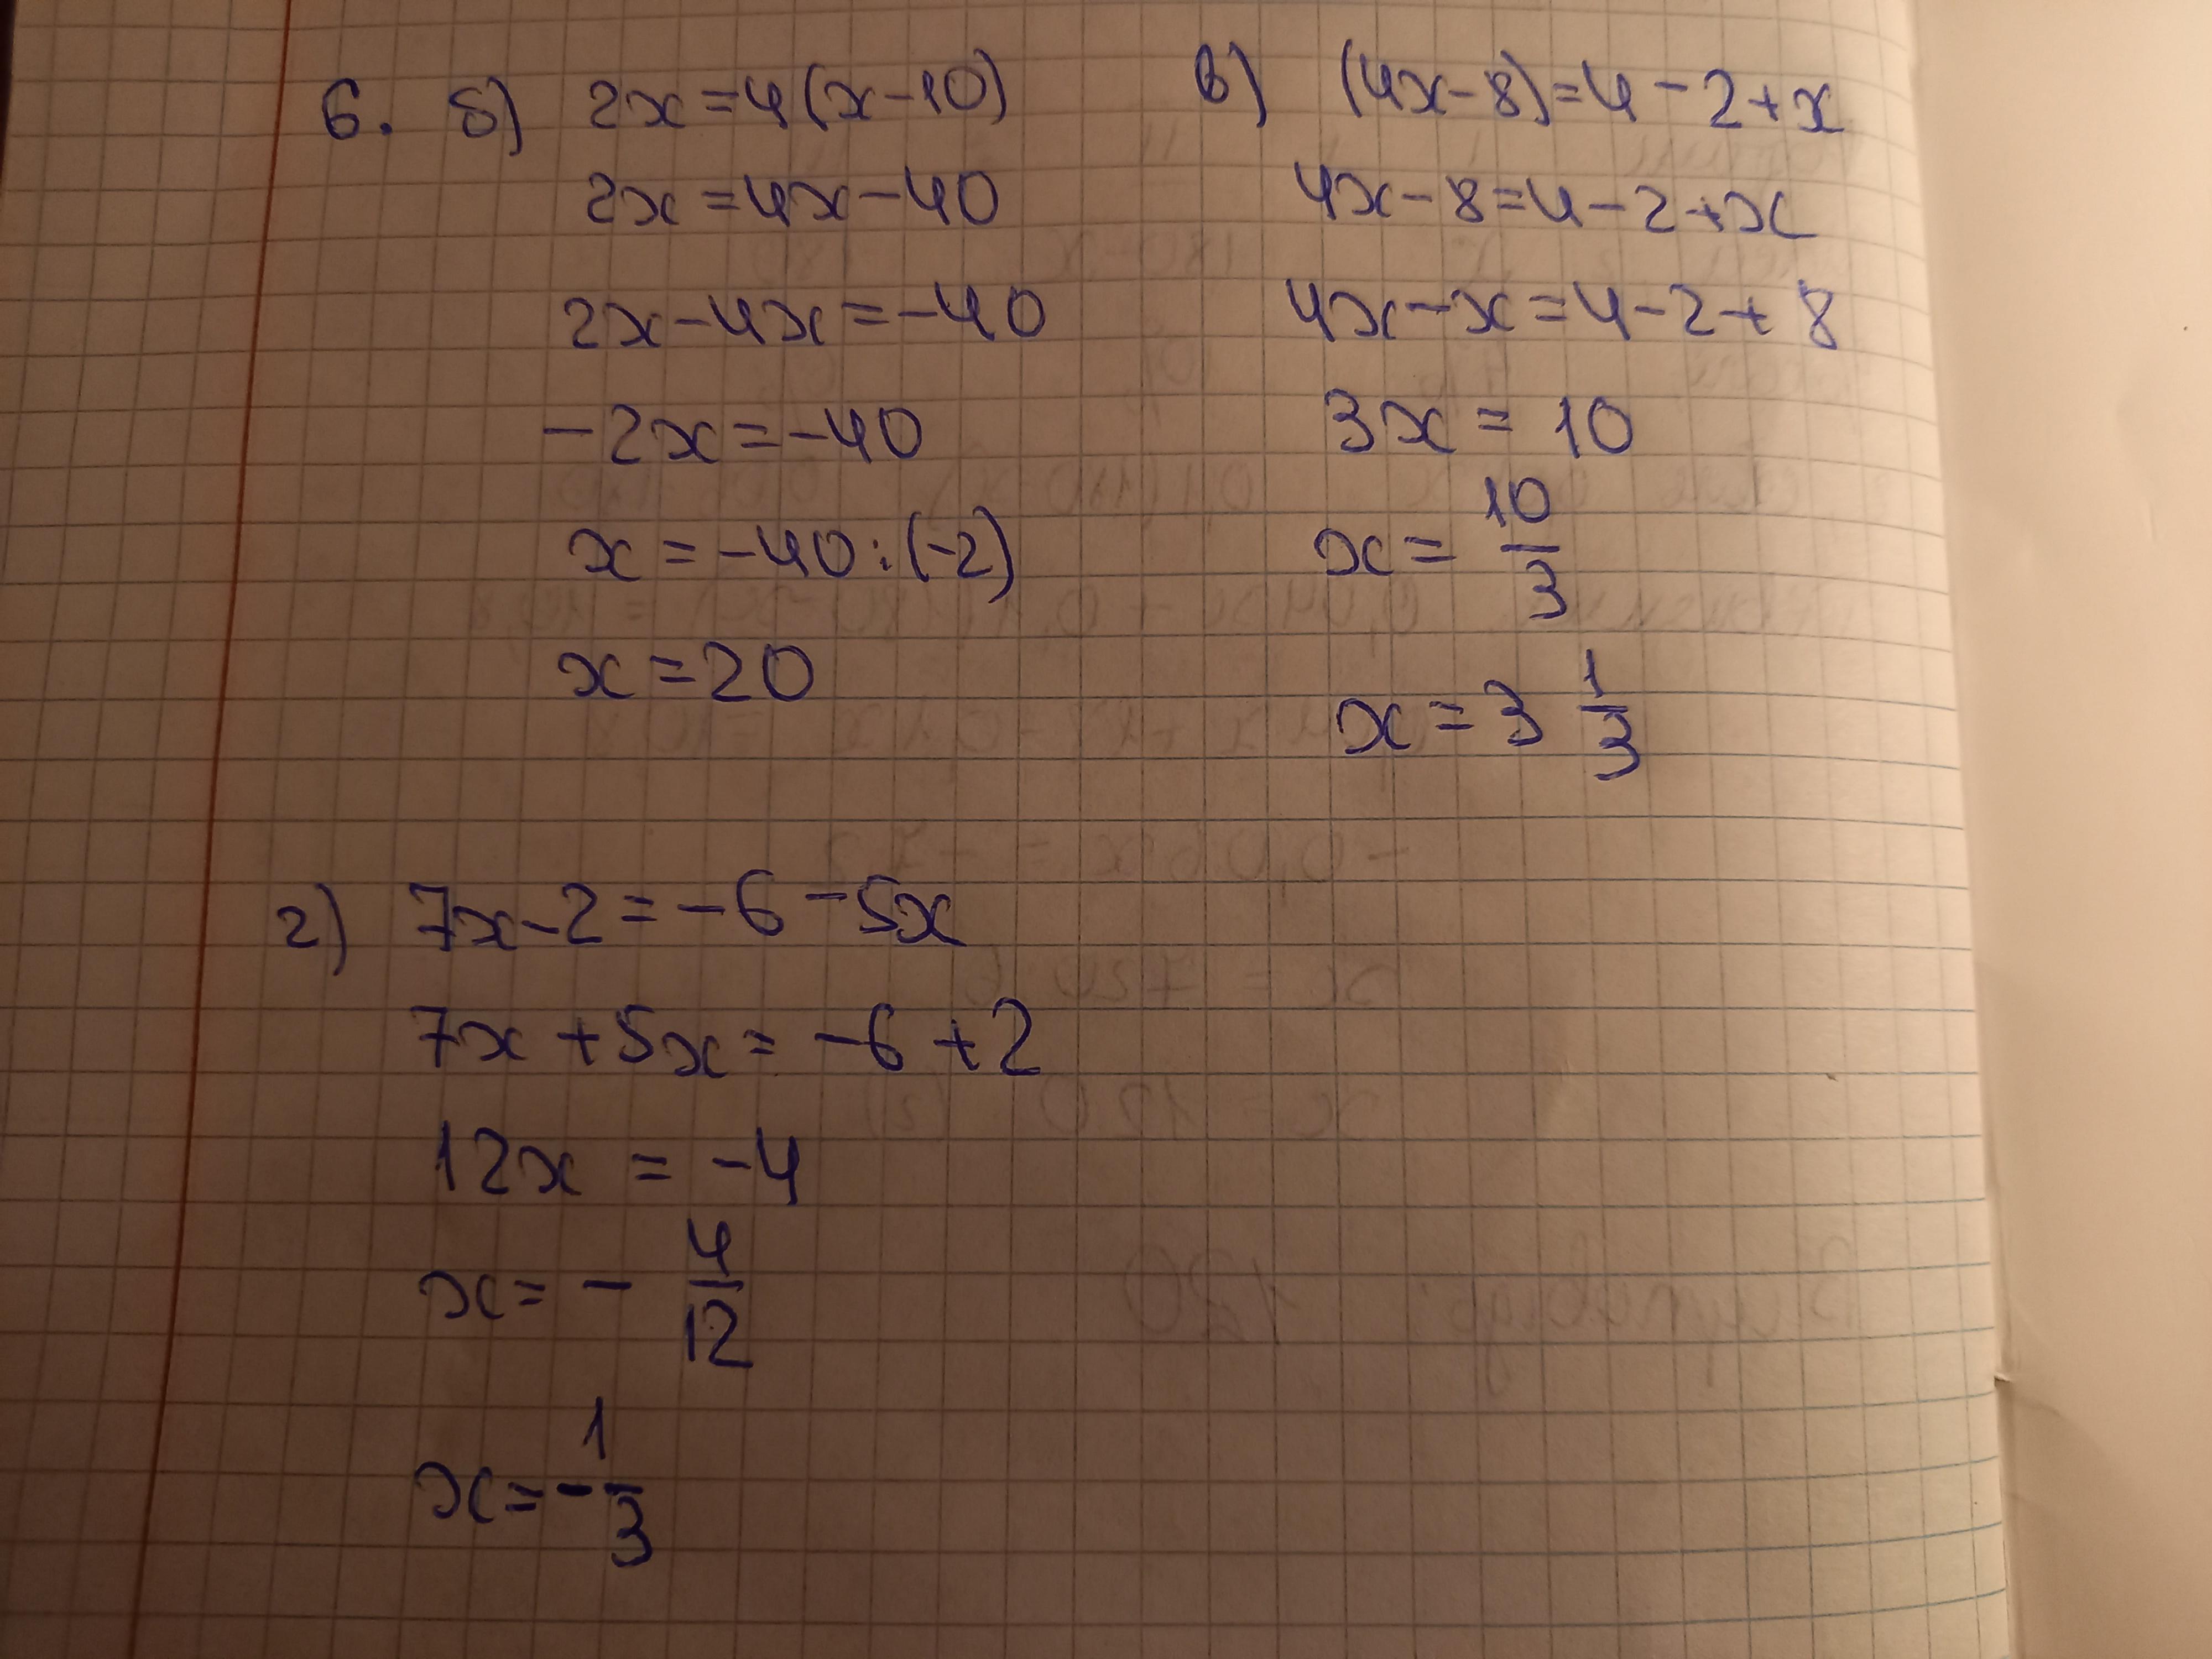 6. б) 2x=4(x-10)
2x=4x-40
2x-4x=-40
-2x=-40
x=-40:(-2)
x=20
в) (4x-8)=4-2+x
4x-8=4-2+x
4x-x=4-2+8
3x=10
x=10/3
x=3 1/3
г) 7x-2=-6-5x
7x+5x=-6+2
12x=-4
x=-4/12
x=-1/3